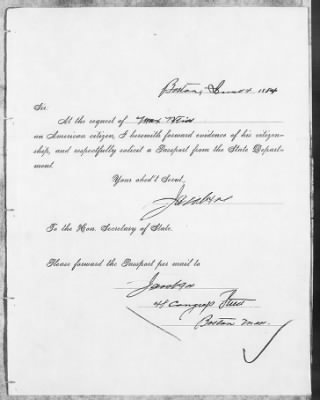 Boston, June 4 1884
Sir.
At the request of Max Weis
an American citizen, I herewith forward evidence of his citizen-
ship, and respectfully solicit a Passport from the State Depart-
ment
Your obed't Servt,
To the Hon. Secretary of State.
Please forward the Passport per mail to
41 Congress Street
Boston Mass.